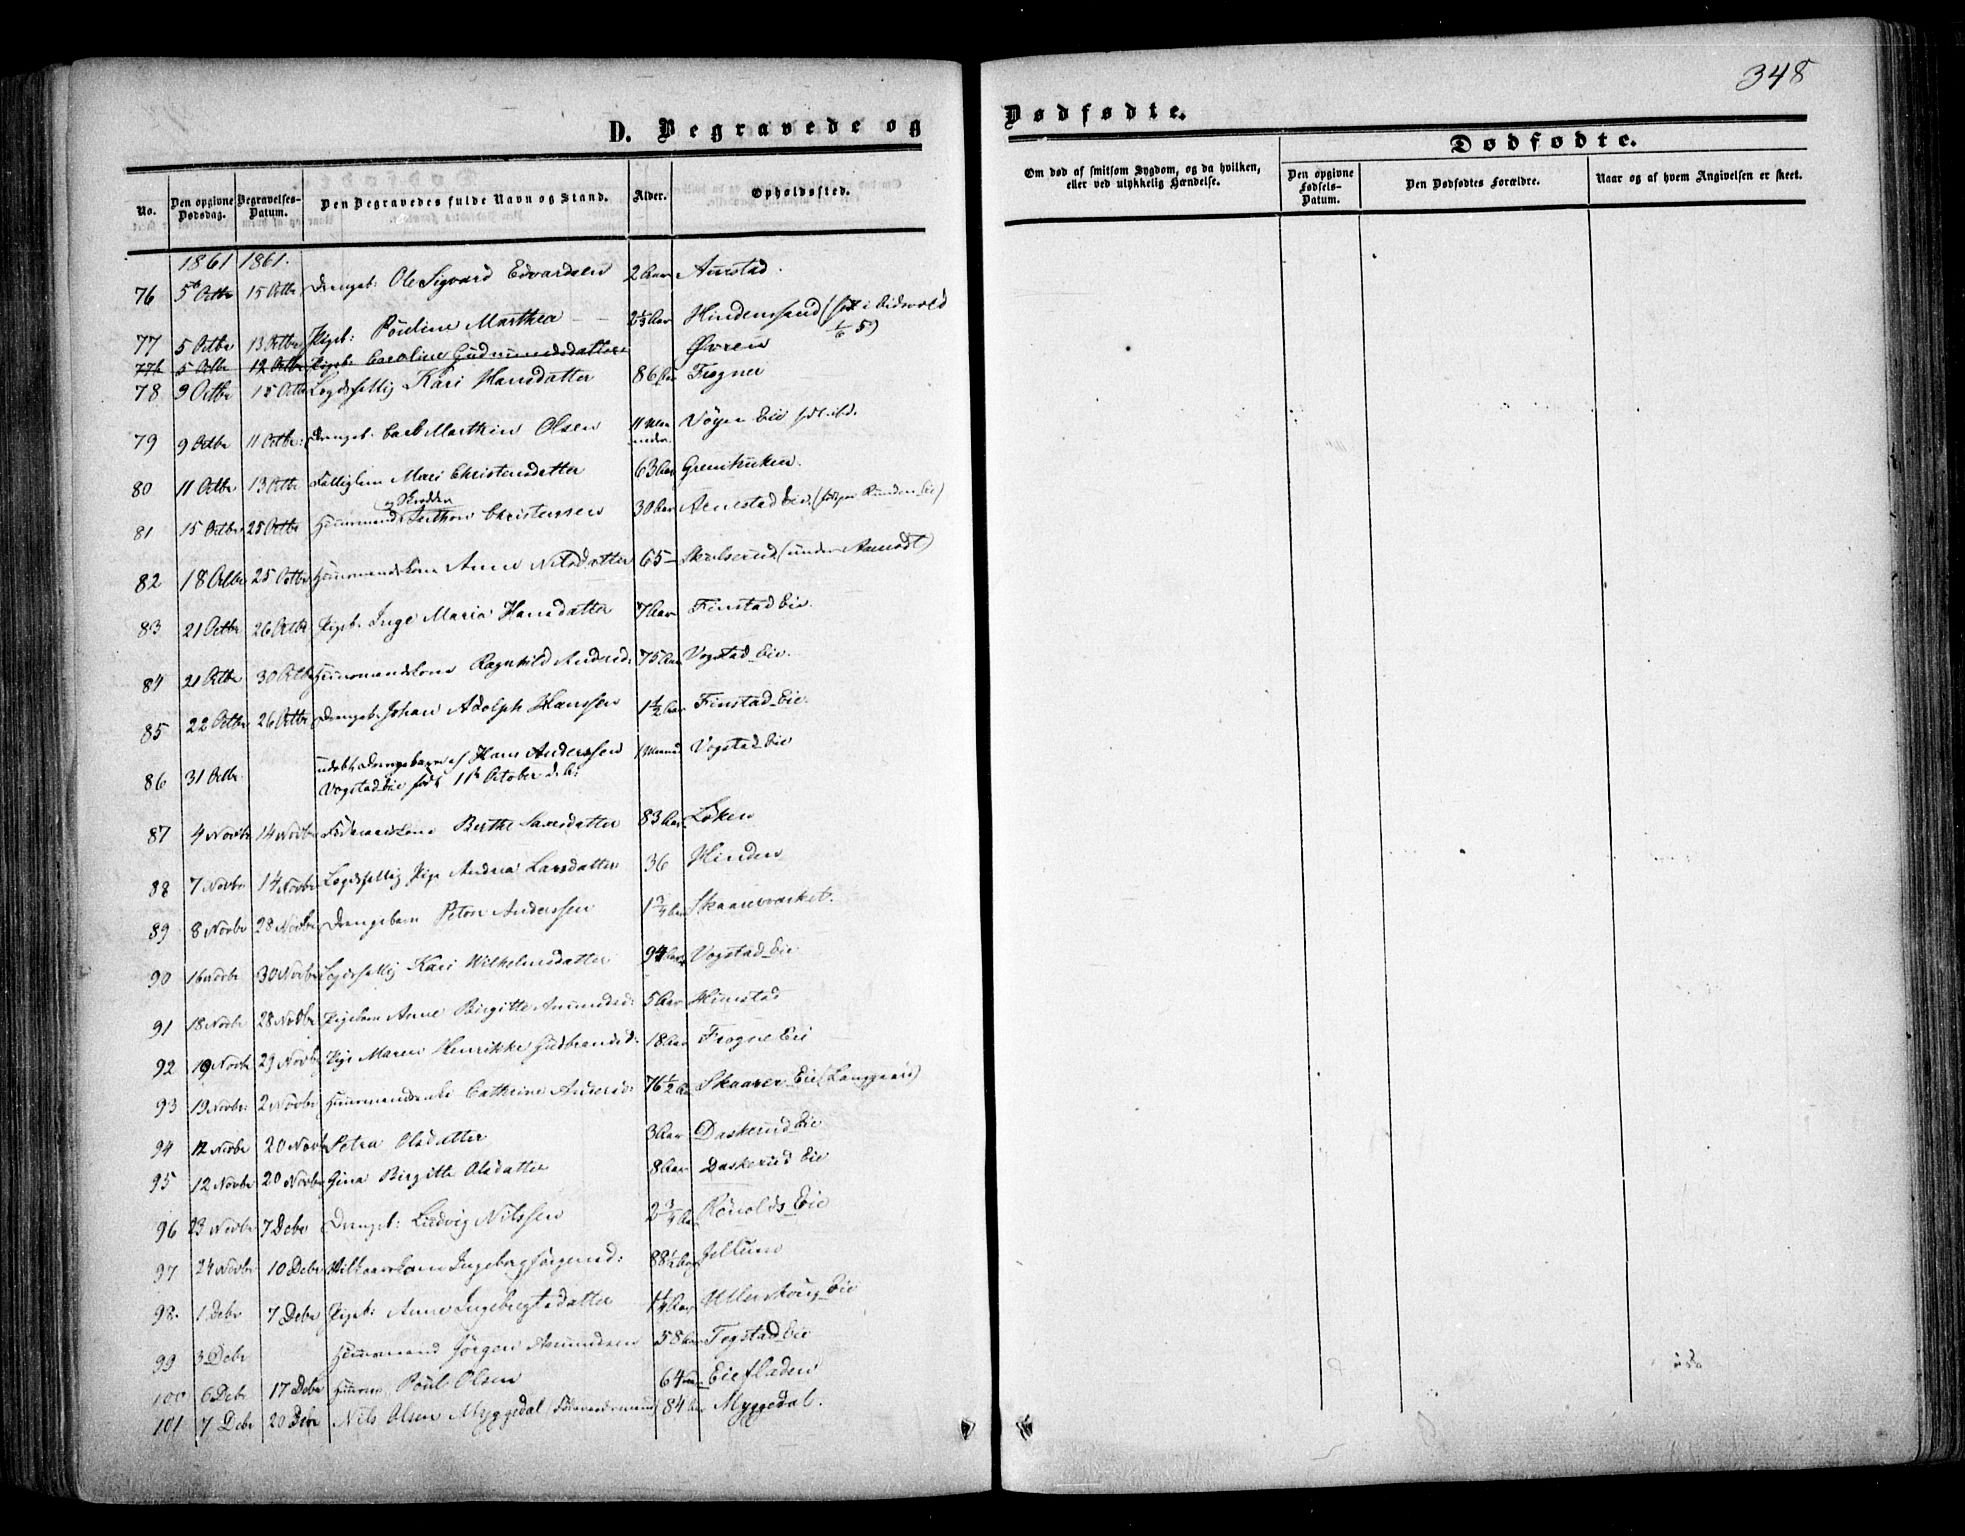 348
D. Begravede og Dødfødte.
No. Den opgivne Dødsdag. Begravelses-Datum. Den Begravedes fulde Navn og Stand. Alder. Opholdssted.
Om død af smitsom Sygdom, og da hvilken, eller ved ulykkelig Hændelse.
Dødfødte.
Den opgivne Fødsels-Datum. Den Dødfødtes Forældre. Naar og af hvem Angivelsen er skeet.
1861 1861.
76 5 Octbr 15 Octbr Drengeb: Ole Sigvard Edvardsen 2 Aar
77 5 Octbr 13 Octbr Pigeb: Pouline Marthea 2 1/3 Aar Hindensand (født i Eidsvold
77b 5 Octbr 12 Octbr Pigeb: Caroline Gudmundsdatter Øvren
78 9 Octbr 15 Octbr Lægdsfattig Kari Hansdatter 86 Aar Frogner
79 9 Octbr 11 Octbr: Drengeb. Carl Marthin Olsen 11 Maaneder
80 11 Octbr 13 Octbr Fattiglem Mari Christensdatter 63 Aar
81 15 Octbr 25 Octbr Huusmand og Skrædder Anthon Christensen 30 Aar Arnestad Eie
82 18 Octbr 25 Octbr Huusmandskone Anne Nilsdatter 65 -
83 21 Octbr 26 Octbr Pigeb. Inge Maria Hansdatter 7 Aar Finstad Eie.
84 21 Octbr 30 Octbr Huusmandskone Ragnhild Andersd: 75 Aar Vogstad Eie.
85 22 Octbr 26 Octbr Drengeb: Johan Adolph Hanssen 1 1/2 Aar Finstad Eie.
86 31 Octbr udøbt Drengebarn af Hans Anderssen 1 Maaned Vogstad Eie
Vogstad Eie født 11 October d. A:
87 4 Novbr 14 Novbr Berthe Larsdatter 83 Aar Løken
88 7 Novbr 14 Novbr Lægdsfattig Pige Andrea Larsdatter 36 Hinden
89 8 Novbr 28 Novbr Drengebarn Peter Anderssen 1 3/4 Aar
90 16 Novbr 30 Novbr Lægdsfattig Kari Wilhelmsdatter 94 Aar Vogstad Eie
91 18 Novbr 28 Novbr Pigebarn Anne Birgitte Amundsd: 5 Aar
92 19 Novbr 29 Novbr Pige Maren Henrikke Gudbrandsd: 18 Aar Frogne Eie
93 19 Novbr: 2 Novbr Huusmandsenke Cathrine Andersd: 76 1/2 Aar Skaarer Eie (Langgaard)
94 12 Novbr 20 Novbr Petra Olsdatter 3 Aar Daskerud Eie
95 12 Novbr 20 Novbr Gina Birgitte Olsdatter 8 Aar Daskerud Eie
96 23 Novbr 7 Debr Drengeb: Ludvig Nilssen 2 3/4 Aar Eie
97 24 Novbr 10 Debr Ingeborg Jørgensd: 88 1/2 Aar Jellum
98. 1 Debr 7 Debr Pigeb: Anne Ingebregtsdatter 1 1/4 Aar Eie
99 3 Debr Huusmand Jørgen Amundsen 58 Aar Togstad Eie
100 6 Debr 17 Debr Huusm: Poul Olsen 64 Aar
101 7 Debr 20 Debr Nils Olsen Myggedal (Føderaadsmand) 84 Aar Myggedal.